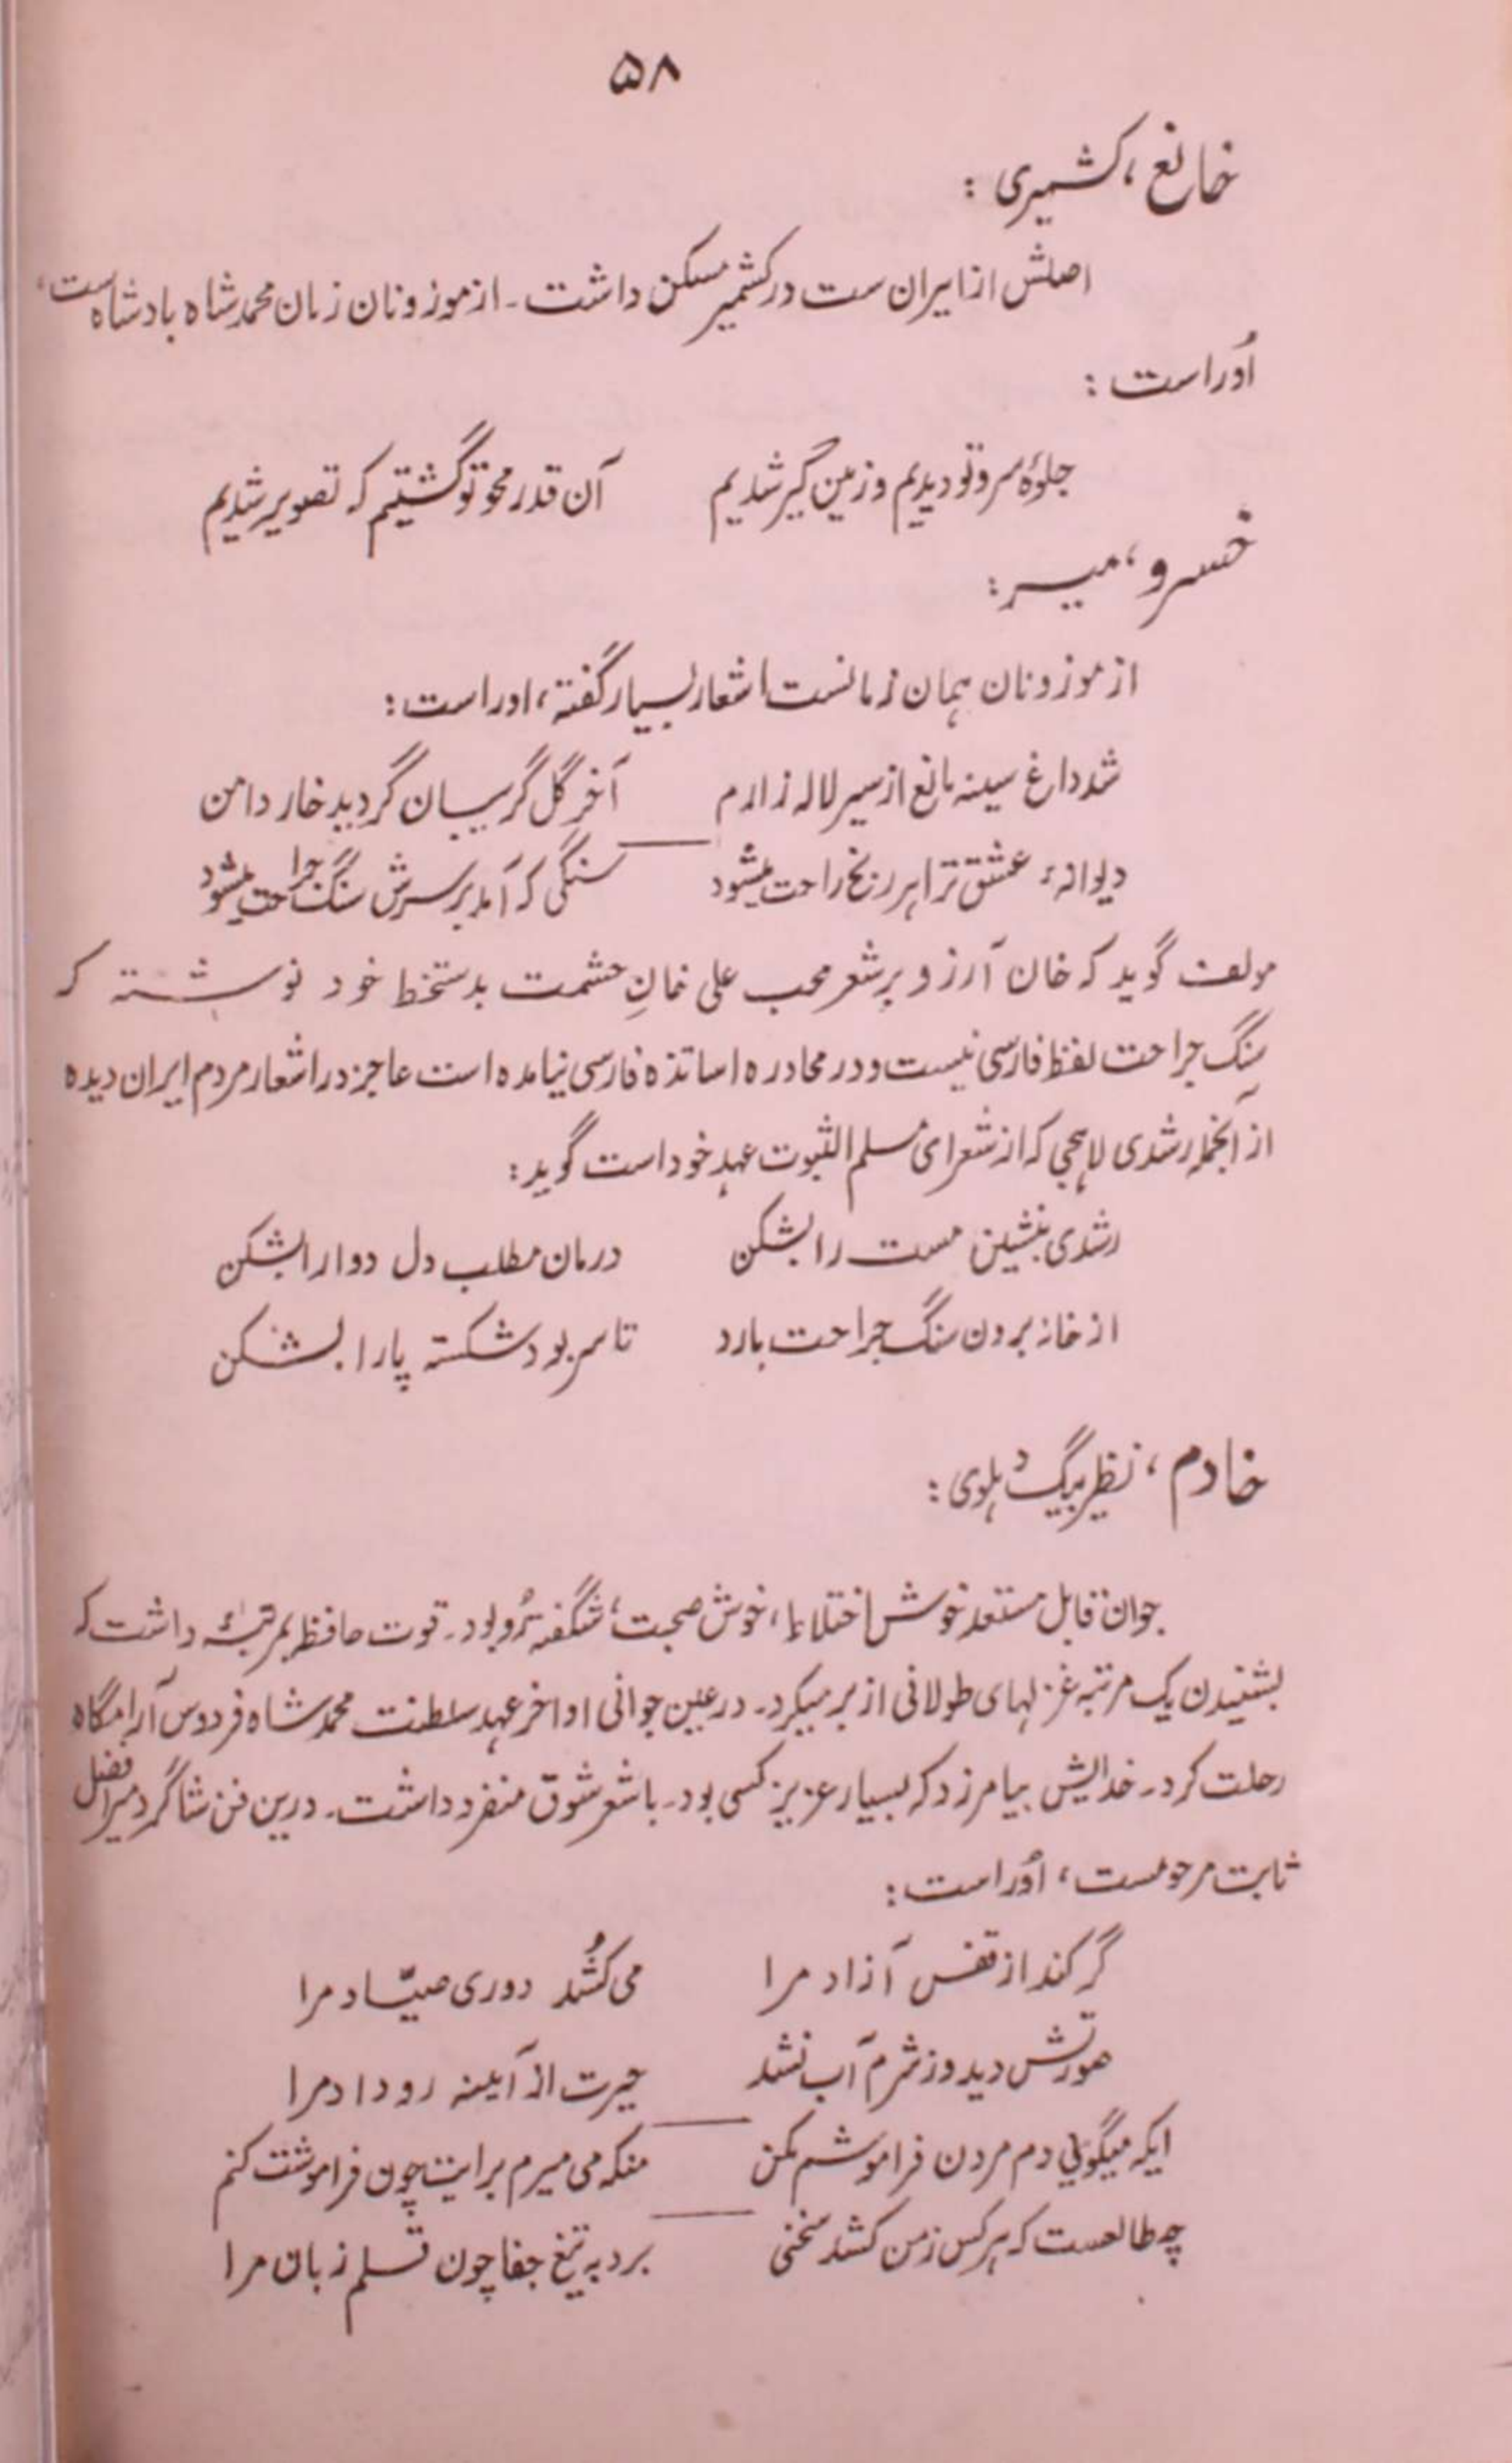 ۵۸
خانع، کشمیری :
اصلش از ایران ست در کشمیر مسکن داشت ۔ از موزونان زمان محمد شاہ بادشاہ است،
اُوراست :
جلوۂ سرو تو دیدیم و زمین گیر شدیم آن قدر محو تو گشتیم کہ تصویر شدیم
خسرو، میر :
از موزونان ہمان زمانست اشعار بسیار گفتہ، اوراست :
شد داغ سینہ مانع از سیر لالہ زارم آخر گل گریبان گردید خار دامن
دیوانۂ عشق ترا ہر رنج راحت میشود سنگی کہ آمد بر سرش سنگ جراحت میشود
مولف گوید کہ خان آرزو بر شعر محب علی خانِ حشمت بدستخط خود نوشتہ کہ
سنگ جراحت لفظ فارسی نیست و در محاورہ اساتذہ فارسی نیامدہ است عاجز در اشعار مردم ایران دیدہ
از آنجملہ رشدی لاہجی کہ از شعرای مسلم الثبوت عہد خود است گوید :
رشدی بنشین مست را بشکن درمان مطلب دل دوا را بشکن
از خانہ برون سنگ جراحت بارد تا سر بود شکستہ پا را بشکن
خادم، نظر بیگ دہلوی :
جوان قابل مستعد خوش اختلاط، خوش صحبت، شگفتہ رُو بود ۔ قوت حافظہ بمرتبۂ داشت کہ
بشنیدن یک مرتبہ غزلہای طولانی از بر میکرد ۔ در عین جوانی اواخر عہد سلطنت محمد شاہ فردوس آرامگاہ
رحلت کرد ۔ خدایش بیامرزد کہ بسیار عزیز کسی بود ۔ با شعر شوق منفرد داشت ۔ درین فن شاگرد میر افضل
ثابت مرحومست، اُوراست :
گر کند از قفس آزاد مرا می کُشد دوری صیّاد مرا
صورتش دید و ز شرم آب نشد حیرت از آیینہ رو داد مرا
ایکہ میگوئی دم مردن فراموشم مکن منکہ می میرم برایت چون فراموشت کنم
چہ طالعست کہ ہر کس ز من کشد سخنی برد بہ تیغ جفا چون قلم زبان مرا